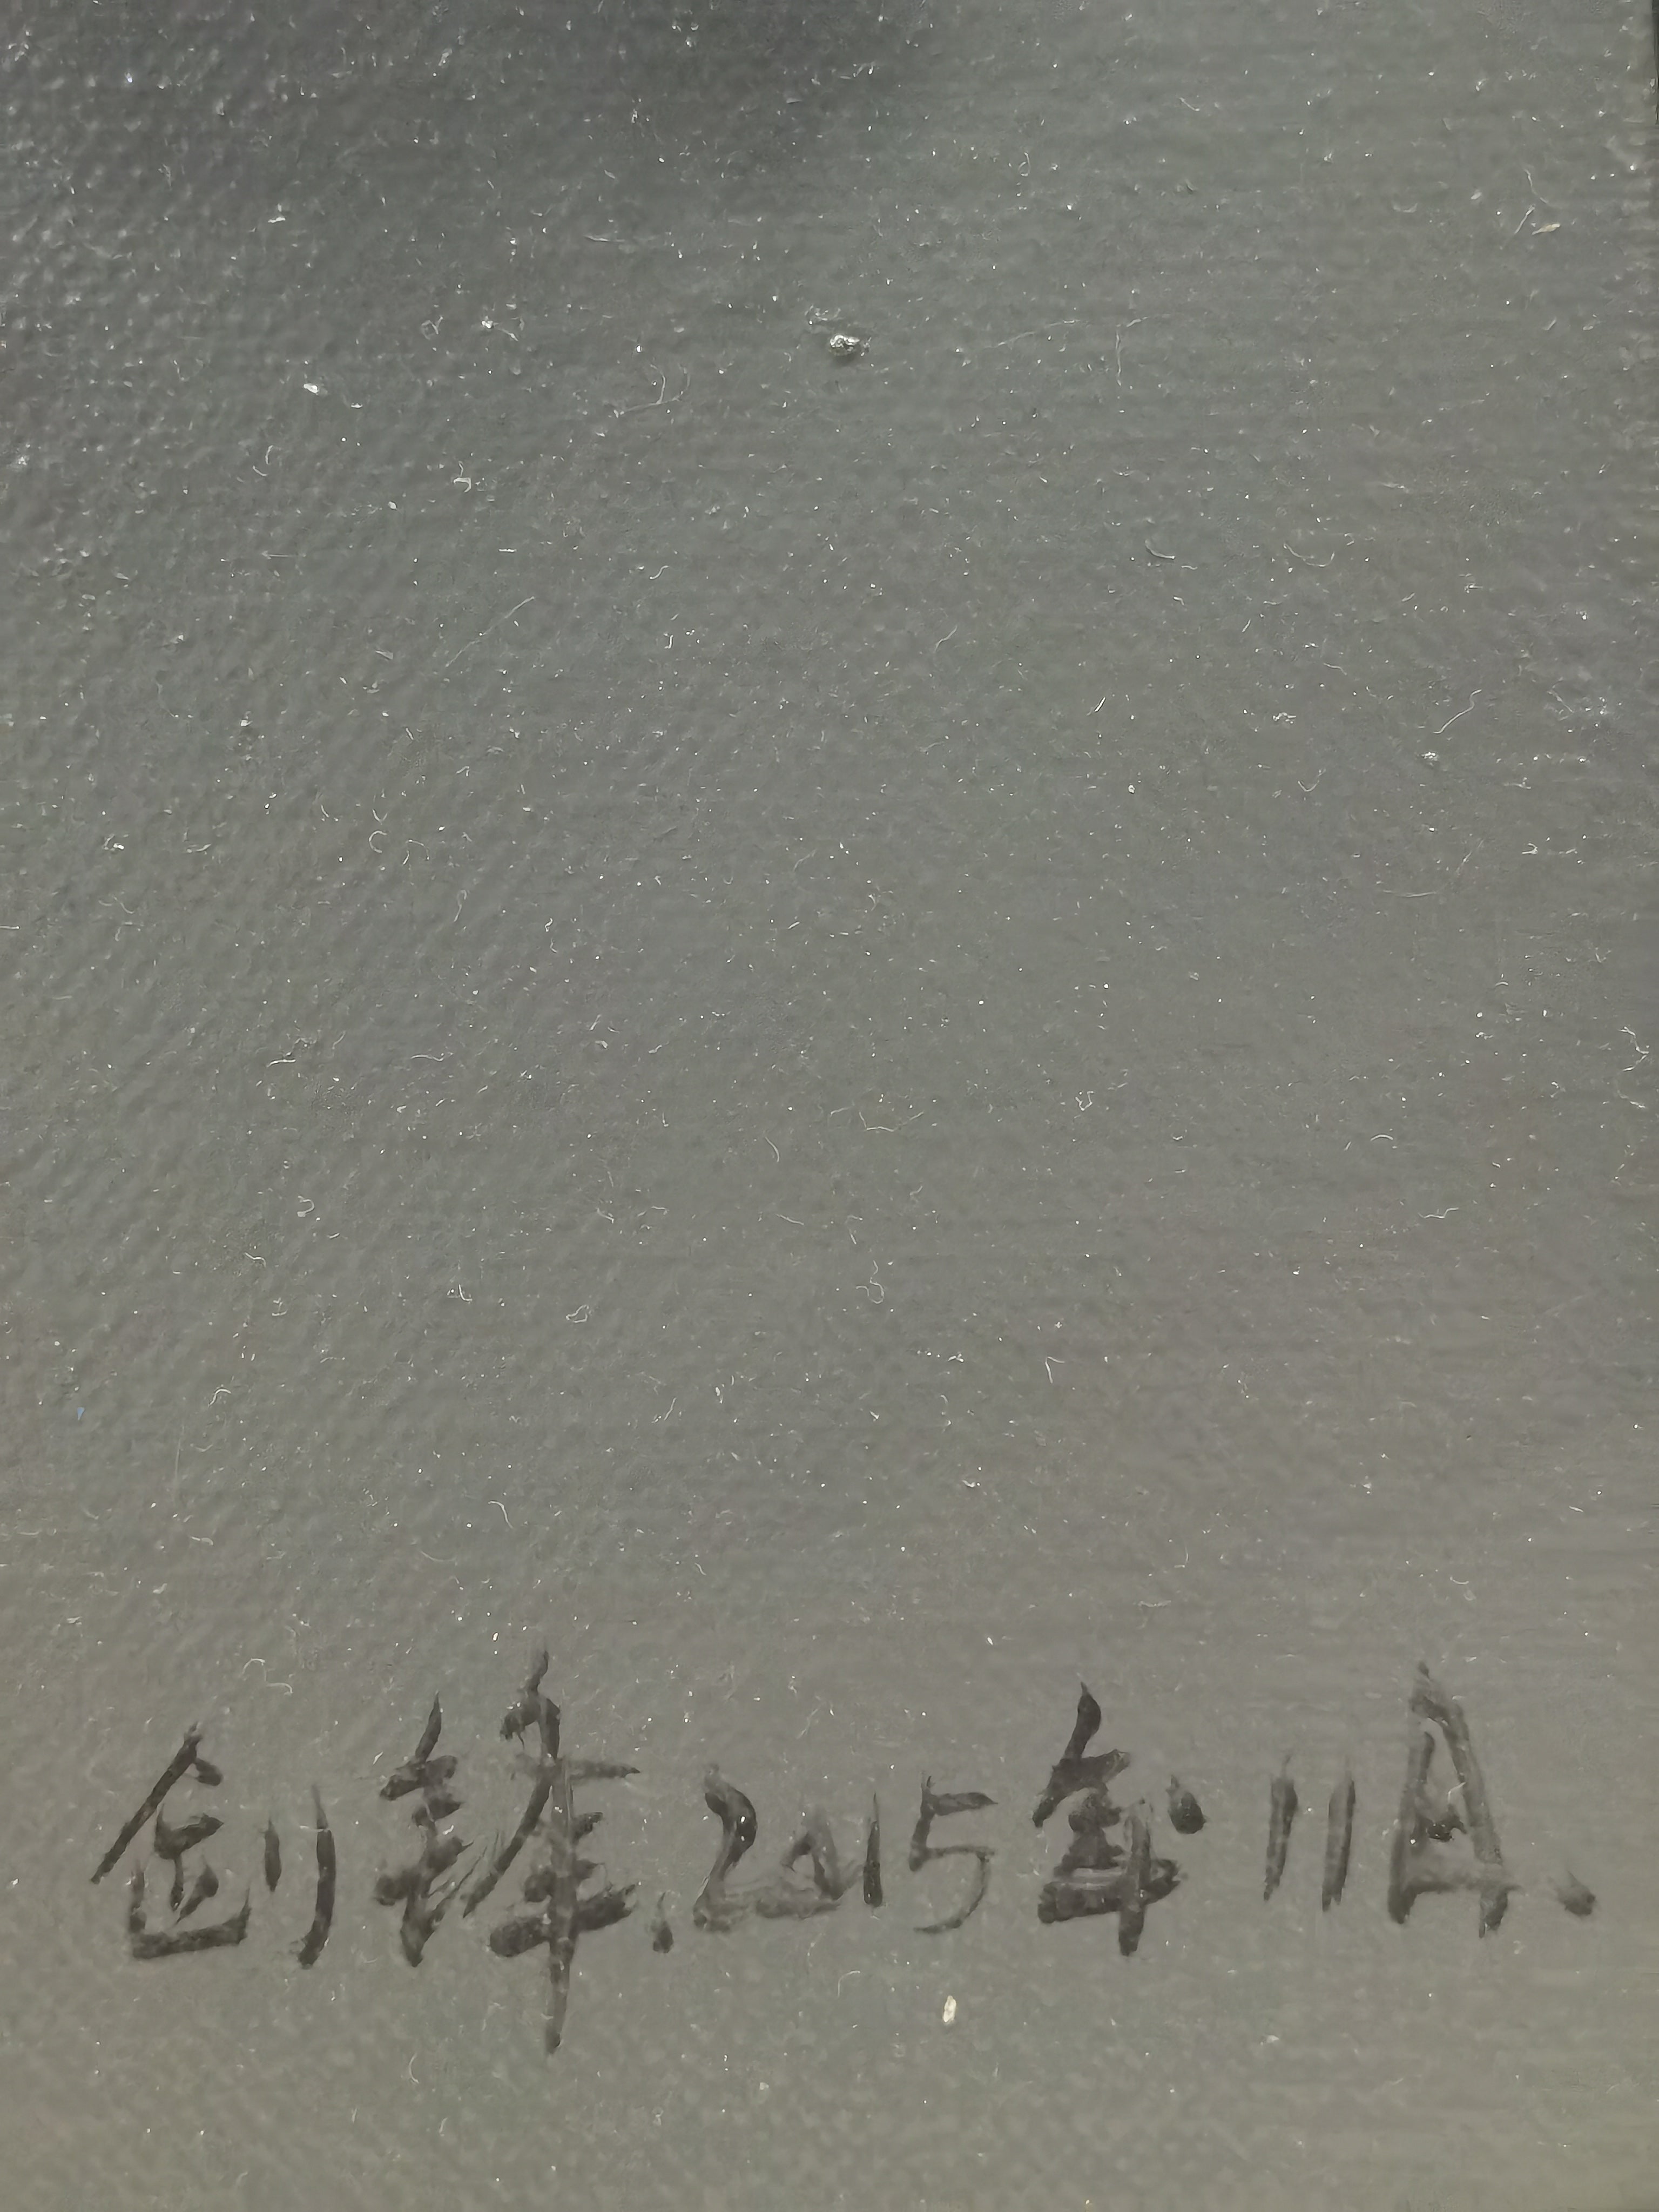 创锋.2015年·11月.